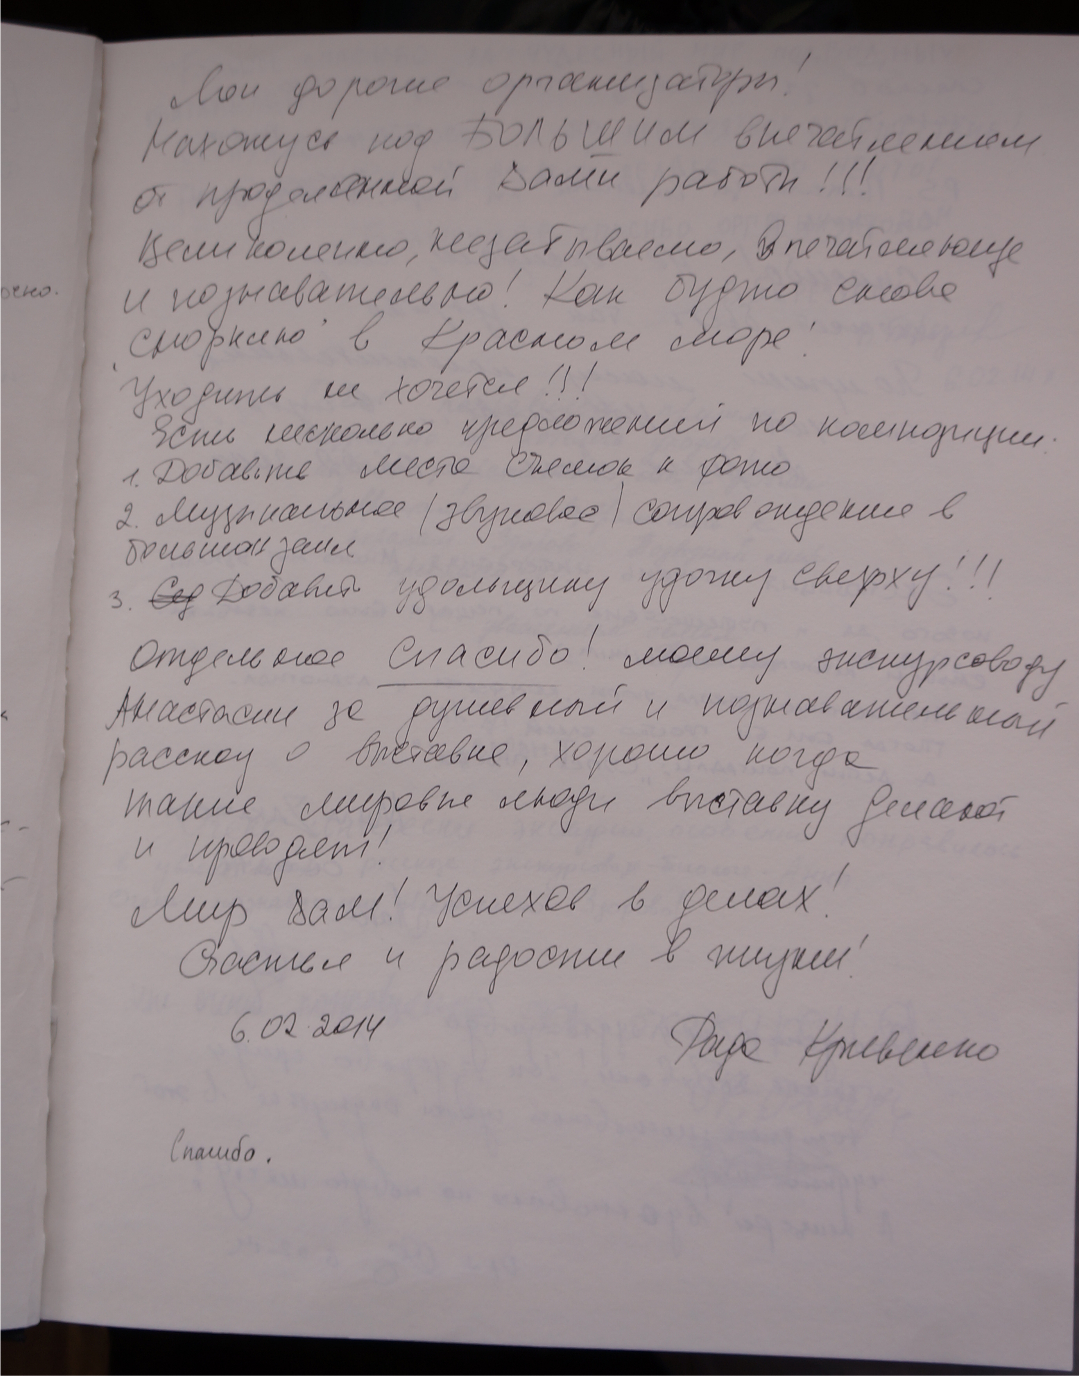 осно.
Мои дорогие организаторы!
Нахожусь под БОЛЬШИМ впечатлением
от проделанной Вами работы!!!
Великолепно, незабываемо, впечатляюще
и познавательно! Как будто снова
сноркаю в Красном море!
Уходить не хочется!!!
Есть несколько предложений по композиции.
1. Добавьте места съемок к фото
2. Музыкальное (звуковое) сопровождение в
большом зале
3. Добавить удильщику удочку сверху!!!
Отдельное Спасибо! моему экскурсоводу
Анастасии за душевный и познавательный
рассказ о выставке, хорошо когда
такие мировые люди выставку делают
и проводят!
Мир Вам! Успехов в делах!
Счастья и радости в жизни!
6.02.2014
Рада Кривенко
Спасибо.